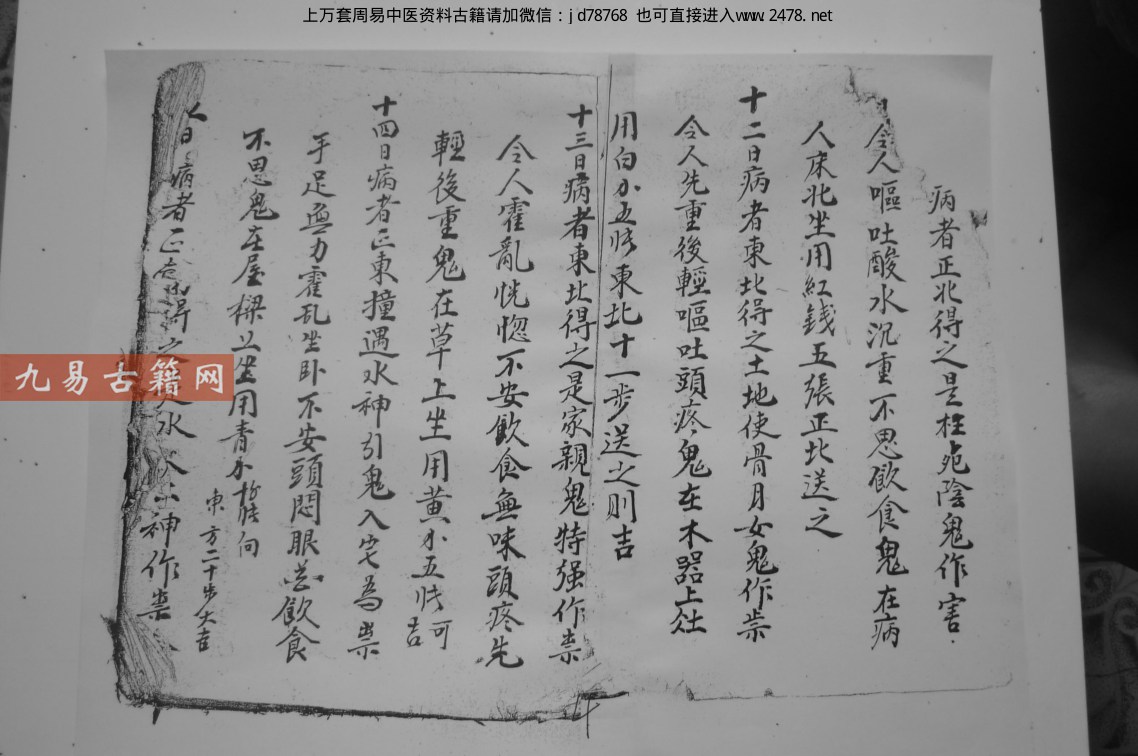 上万套周易中医资料古籍请加微信：jd78768 也可直接进入www.2478.net
病者正北得之是枉死陰鬼作害
令人嘔吐酸水沉重不思飲食鬼在病
人床北坐用紅錢五張正北送之
十二日病者東北得之土地使骨月女鬼作祟
令人先重後輕嘔吐頭疼鬼在木器上
用白小五張東北十一步送之則吉
十三日病者東北得之是家親鬼特强作祟
令人霍亂恍惚不安飲食無味頭疼先
輕後重鬼在草上坐用黄小五張可吉
十四日病者正東撞遇水神引鬼入宅為祟
手足無力霍乱坐卧不安頭悶眼飲食
不思鬼在屋樑上坐用青小張向
東方二十步大吉
日病者正得之水神作祟
九易古籍网